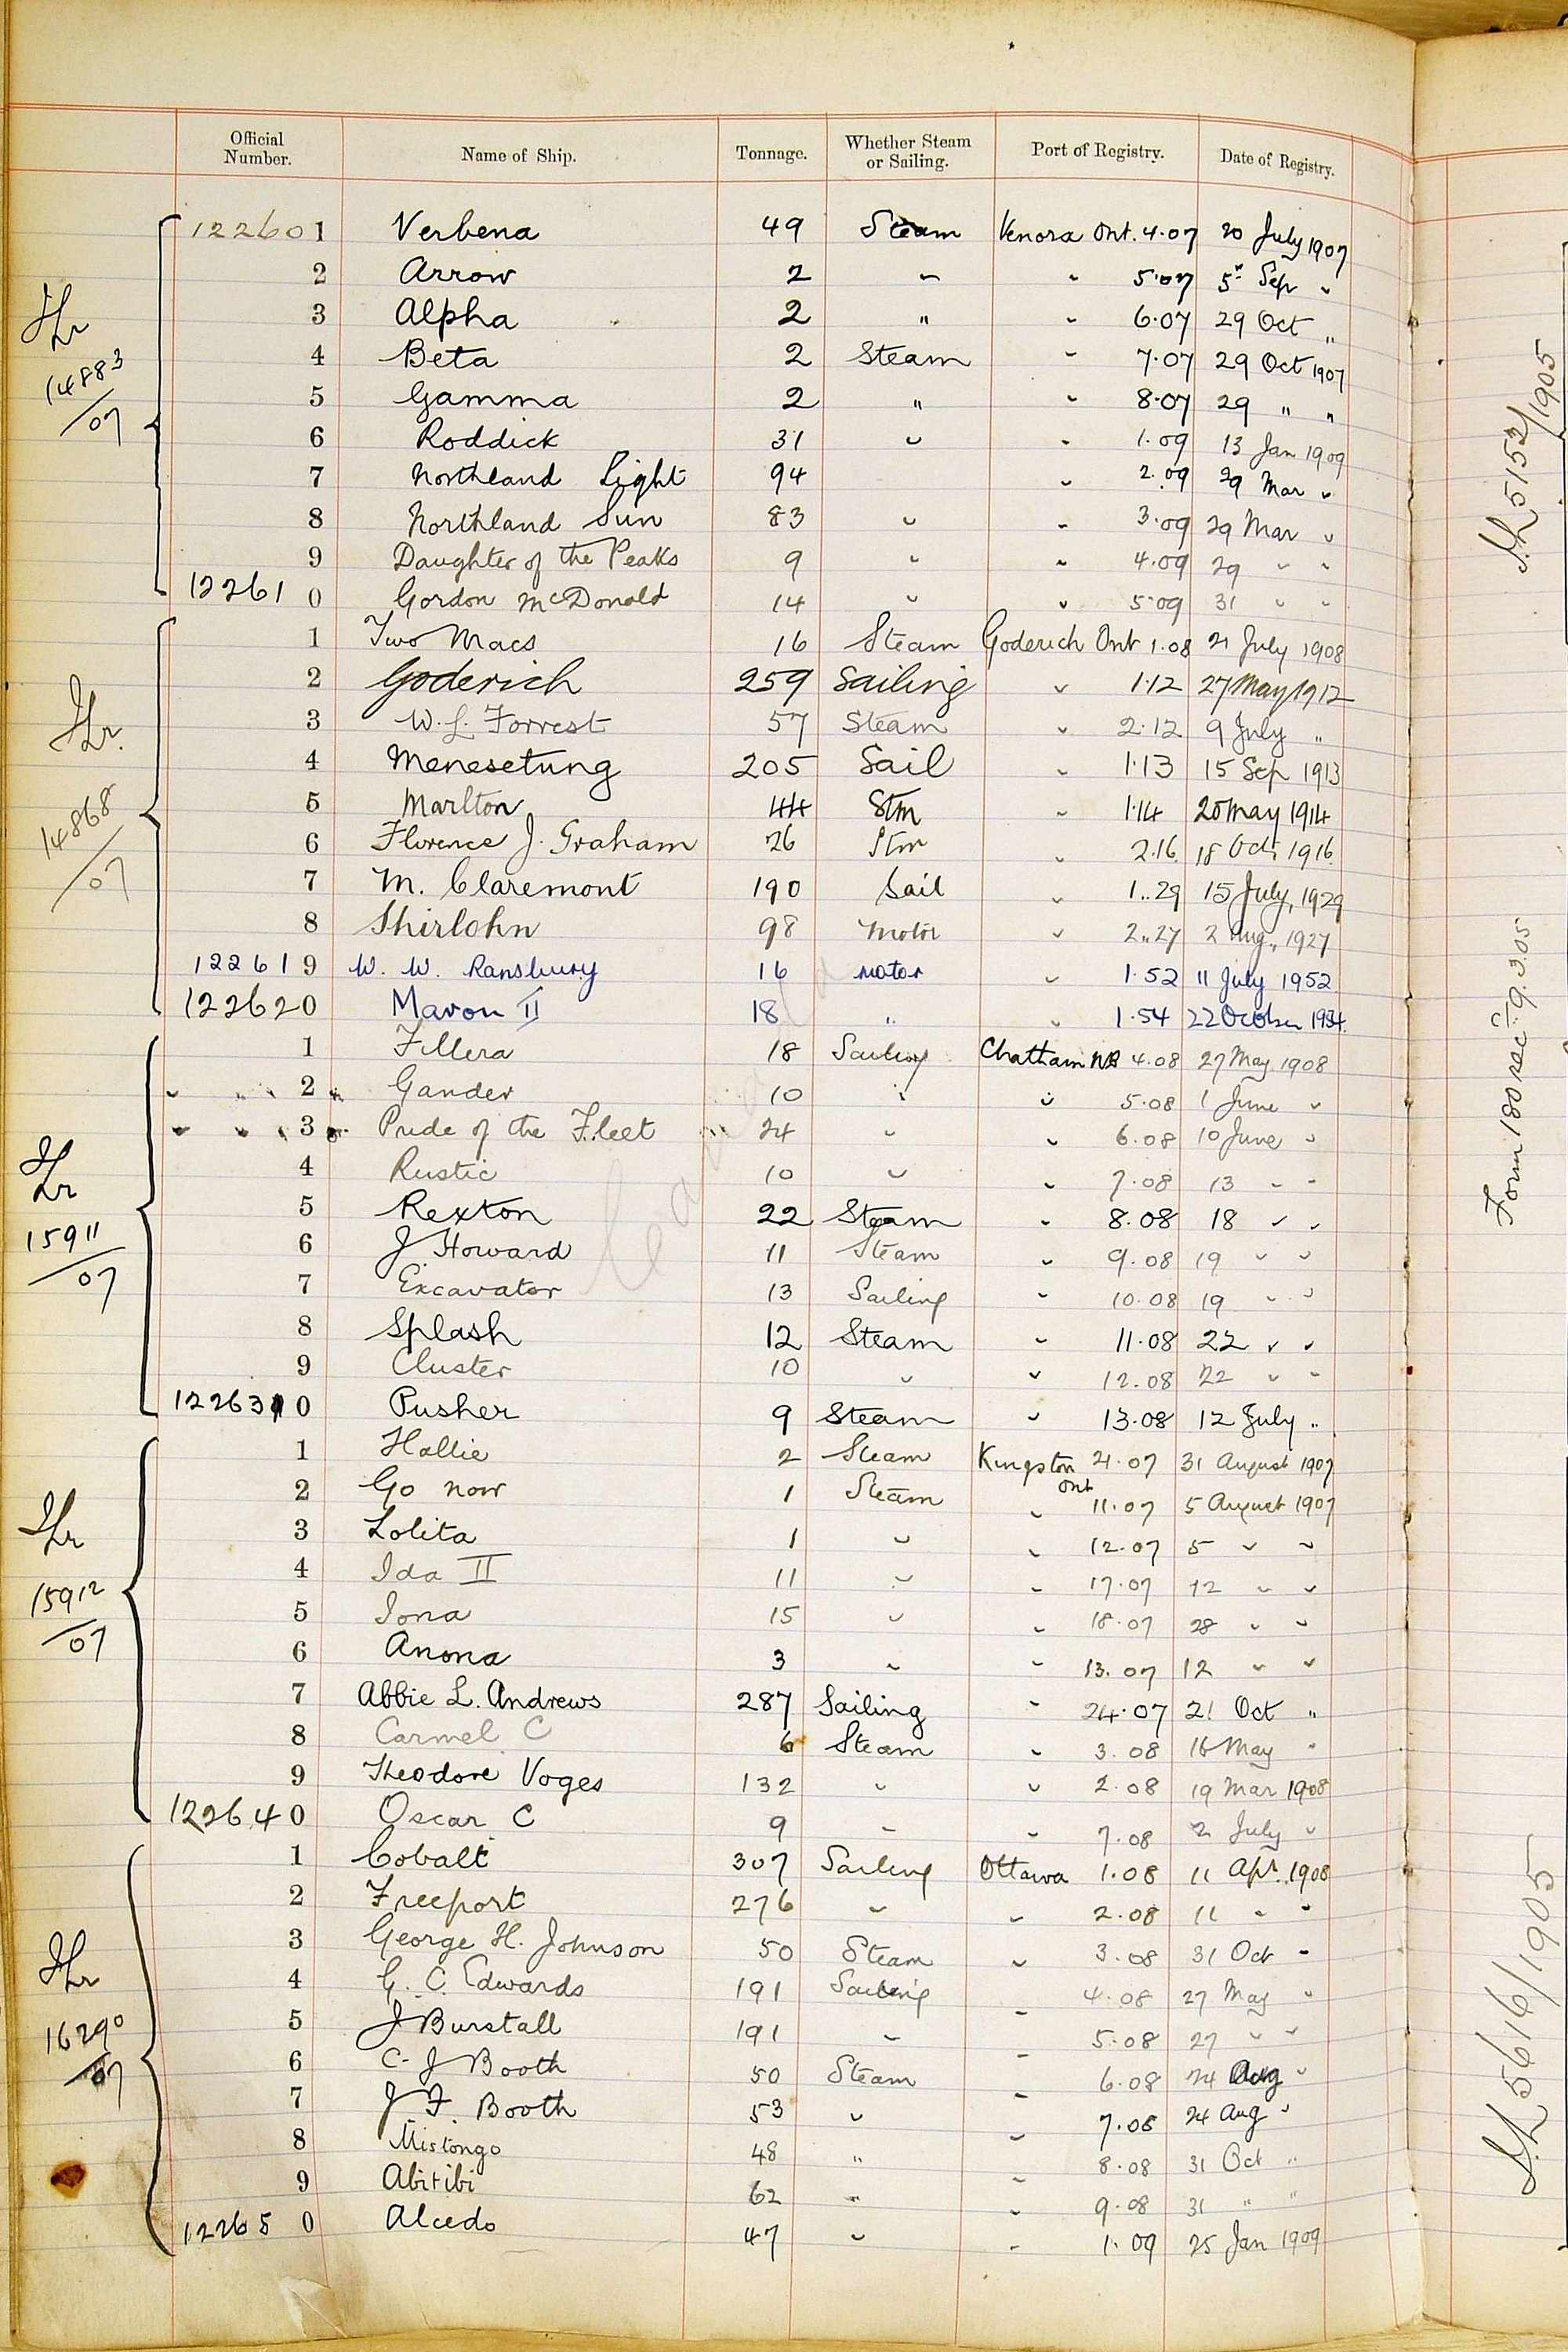 Official Number. Name of Ship. Tonnage. Whether Steam or Sailing. Port of Registry. Date of Registry.
122601 Verbena 49 Steam Kenora Ont. 4.07 20 July 1907
2 Arrow 2 " " 5.07 5 Sep "
3 Alpha 2 " " 6.07 29 Oct "
4 Beta 2 Steam " 7.07 29 Oct 1907
14883/07
5 Gamma 2 " " 8.07 29 " "
6 Roddick 31 " " 1.09 13 Jan 1909
7 Northland Light 94 " 2.09 29 Mar "
8 Northland Sun 83 " " 3.09 29 Mar "
9 Daughter of the Peaks 9 " " 4.09 29 " "
122610 Gordon McDonald 14 " " 5.09 31 " "
1 Two Macs 16 Steam Goderich Ont 1.08 21 July 1908
2 Goderich 259 Sailing " 1.12 27 May 1912
3 W. L. Forrest 57 Steam " 2.12 9 July "
4 Menesetung 205 Sail " 1.13 15 Sep 1913
5 Marlton 44 Stm " 1.14 20 May 1914
14868/07
6 Florence J. Graham 26 Stm " 2.16 18 Oct 1916
7 M. Claremont 190 Sail " 1..29 15 July, 1929
8 Shirlohn 98 Motor " 2..27 2 Aug., 1927
122619 W. W. Ransbury 16 motor " 1.52 11 July 1952
122620 Mavon II 18 " " 1.54 22 October 1954.
1 Fillera 18 Sailing Chatham NB 4.08 27 May 1908
" " " 2 " Gander 10 " " 5.08 1 June "
" " " 3 " Pride of the Fleet 24 " " 6.08 10 June "
4 Rustic 10 " " 7.08 13 " "
5 Rexton 22 Steam " 8.08 18 " "
15911/07
6 J Howard 11 Steam " 9.08 19 " "
7 Excavator 13 Sailing " 10.08 19 " "
8 Splash 12 Steam " 11.08 22 " "
9 Cluster 10 " " 12.08 22 " "
122630 Pusher 9 Steam " 13.08 12 July "
1 Hallie 2 Steam Kingston Ont 21.07 31 August 1907
2 Go now 1 Steam " 11.07 5 August 1907
3 Lolita 1 " " 12.07 5 " "
4 Ida II 11 " " 17.07 12 " "
15912/07
5 Iona 15 " " 18.07 28 " "
6 Anona 3 " " 13.07 12 " "
7 Abbie L. Andrews 287 Sailing " 24.07 21 Oct "
8 Carmel C 6 Steam " 3.08 16 May "
9 Theodore Voges 132 " " 2.08 19 Mar 1908
122640 Oscar C 9 " " 7.08 2 July "
1 Cobalt 307 Sailing Ottawa 1.08 11 Apr. 1908
2 Freeport 276 " " 2.08 11 " "
3 George H. Johnson 50 Steam " 3.08 31 Oct "
4 G. C. Edwards 191 Sailing " 4.08 27 May "
5 J Burstall 191 " " 5.08 27 " "
16290/07
6 C. J Booth 50 Steam " 6.08 24 Aug "
7 J. F. Booth 53 " " 7.08 24 Aug "
8 Mistongo 48 " " 8.08 31 Oct "
9 Abitibi 62 " " 9.08 31 " "
122650 Alcedo 47 " " 1.09 25 Jan 1909
5152/1905
Form 180 rec: 9.3.05
5616/1905